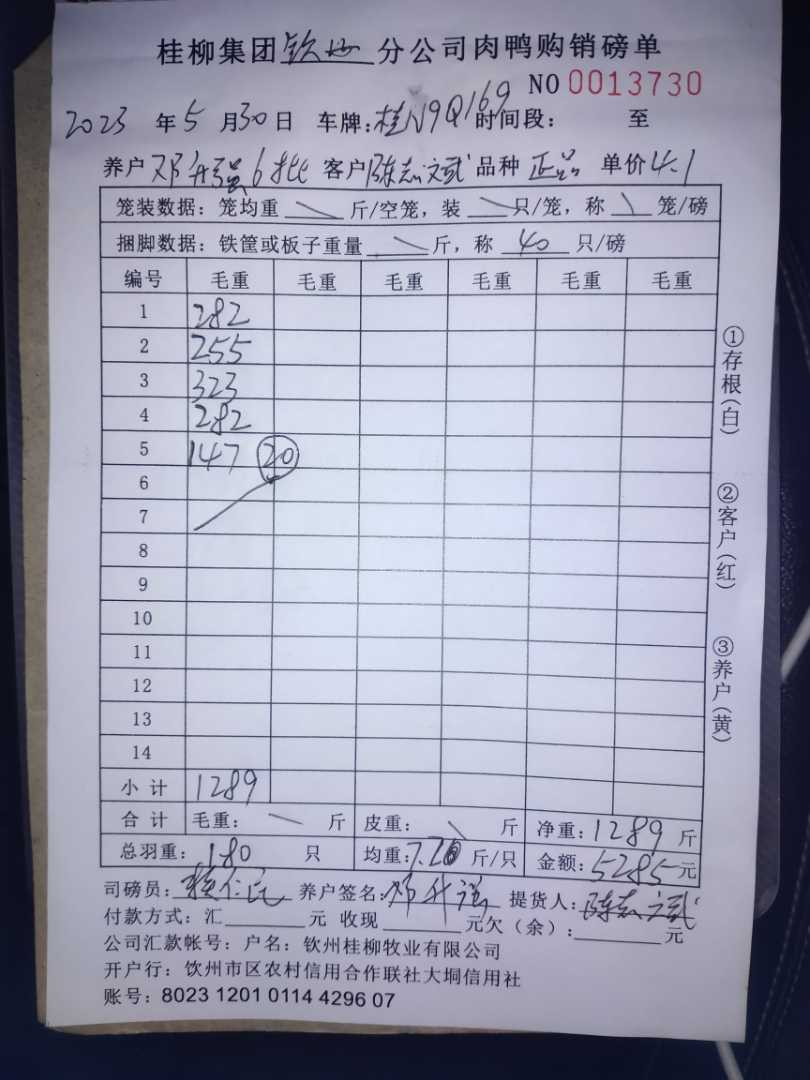 桂柳集团钦州分公司肉鸭购销磅单
NO 0013730
2023年5月30日 车牌:桂N9Q169时间段: 至
养户邓升强6批 客户陈志斌 品种正品 单价4.1
笼装数据:笼均重 斤/空笼,装 只/笼,称 笼/磅
捆脚数据:铁筐或板子重量 斤,称 40 只/磅
编号 毛重 毛重 毛重 毛重 毛重 毛重
1 282
2 255
3 323
4 282
5 147 20
6
7
8
9
10
11
12
13
14
小计 1289
合计 毛重: 斤 皮重: 斤 净重:1289斤
总羽重:180 只 均重:7.2 斤/只 金额:5285元
司磅员: 养户签名:邓升强 提货人:陈志斌
付款方式:汇 元 收现 元欠(余): 元
公司汇款帐号:户名:钦州桂柳牧业有限公司
开户行:钦州市区农村信用合作联社大垌信用社
账号:8023 1201 0114 4296 07
①存根(白)
②客户(红)
③养户(黄)